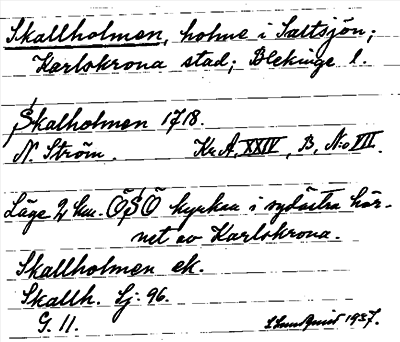 Skallholmen, holme i Saltsjön;
Karlskrona stad; Blekinge l.
Skalholmen 1718.
N. Ström. Kr. A. XXIV, B, N:o VII.
Läge 2 km. ÖSÖ kyrkan i sydöstra hör-
net av Karlskrona.
Skallholmen ek.
Skallh. Sj: 96.
G. 11.
1937.